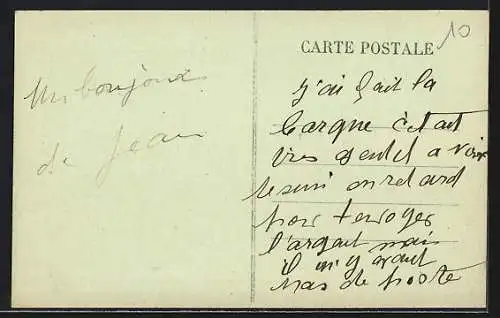 10
CARTE POSTALE
Un bonjour
de Jean
j'ai fait la
barque c'etait
tres gentil a voir
je suis en retard
pour tenvoyer
l'argent mais
il n'y avait
pas de poste